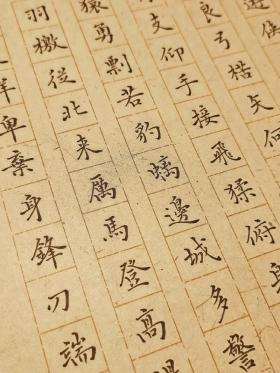 遊俠
良弓楛矢何
支仰手接飛猱俯身
猿勇剽若豹螭邊城多警
羽檄從北来厲馬登高
卑棄身鋒刃端